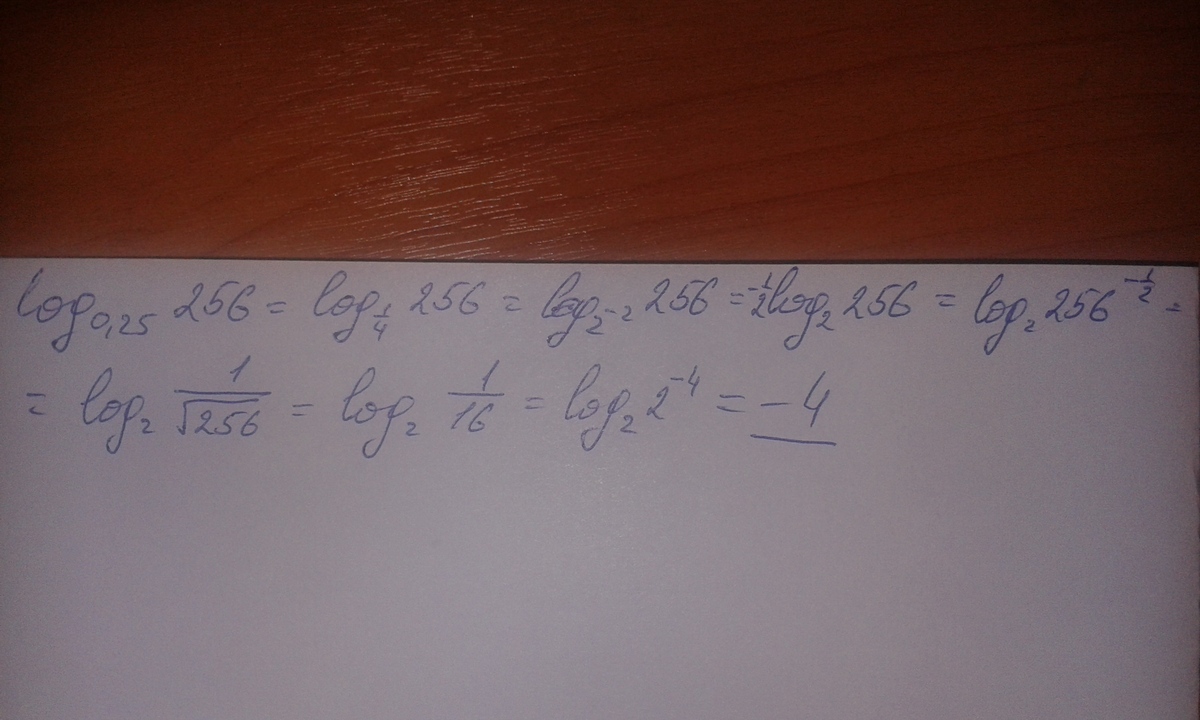 log₀,₂₅ 256 = log_{1/4} 256 = log_{2⁻²} 256 = -½ log₂ 256 = log₂ 256^{-½} =
= log₂ 1/√256 = log₂ 1/16 = log₂ 2⁻⁴ = -4